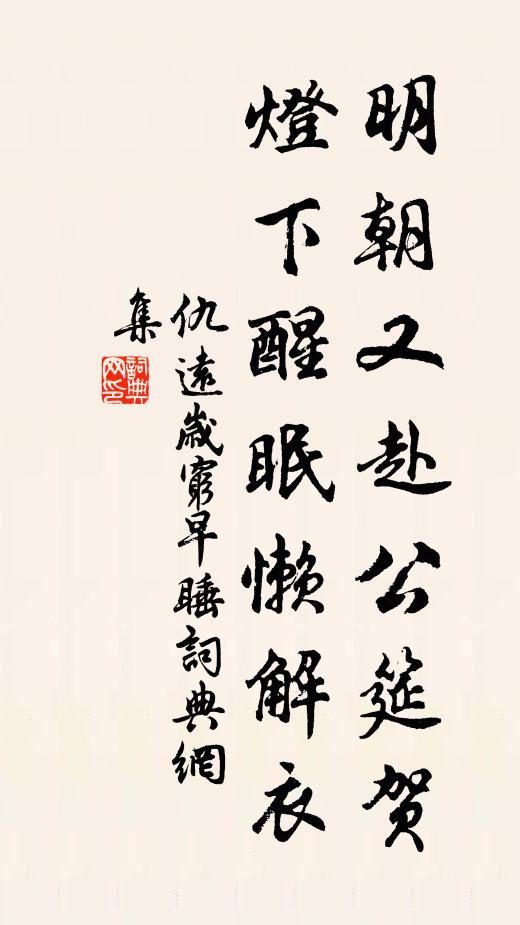 明朝又赴公筵賀
燈下醒眠懶解衣
仇遠歲窮早睡詞典網
集
詞典网印